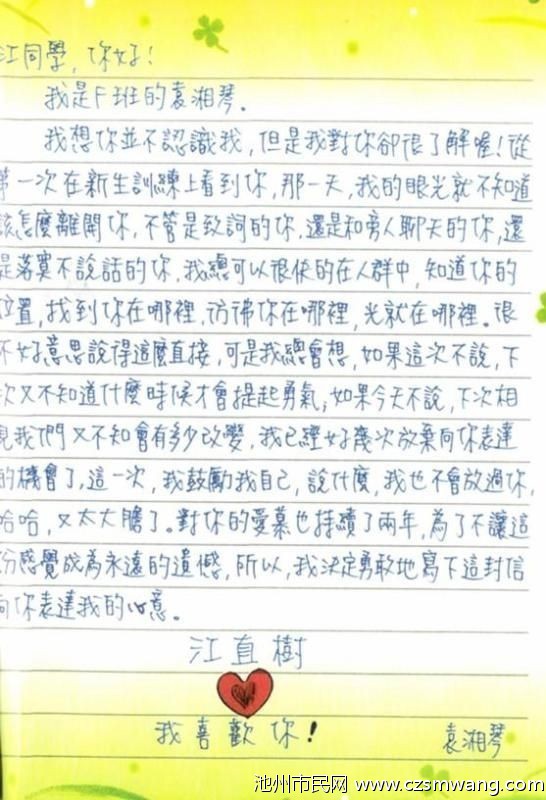 江同學,你好!
我是F班的袁湘琴。
我想你並不認識我,但是我對你卻很了解喔!從
第一次在新生訓練上看到你,那一天,我的眼光就不知道
該怎麼離開你,不管是致詞的你,還是和旁人聊天的你,還
是落寞不說話的你,我總可以很快的在人群中,知道你的
位置,找到你在哪裡,彷彿你在哪裡,光就在哪裡。很
不好意思說得這麼直接,可是我總會想,如果這次不說,下
次又不知道什麼時候才會提起勇氣;如果今天不說,下次相
見我們又不知會有多少改變,我已經好幾次放棄向你表達
的機會了,這一次,我鼓勵我自己,說什麼,我也不會放過你,
哈哈,又太大膽了。對你的愛慕也持續了兩年,為了不讓這
份感覺成為永遠的遺憾,所以,我決定勇敢地寫下這封信
向你表達我的心意。
江直樹
我喜歡你!
袁湘琴
池州市民网 www.czsmwang.com